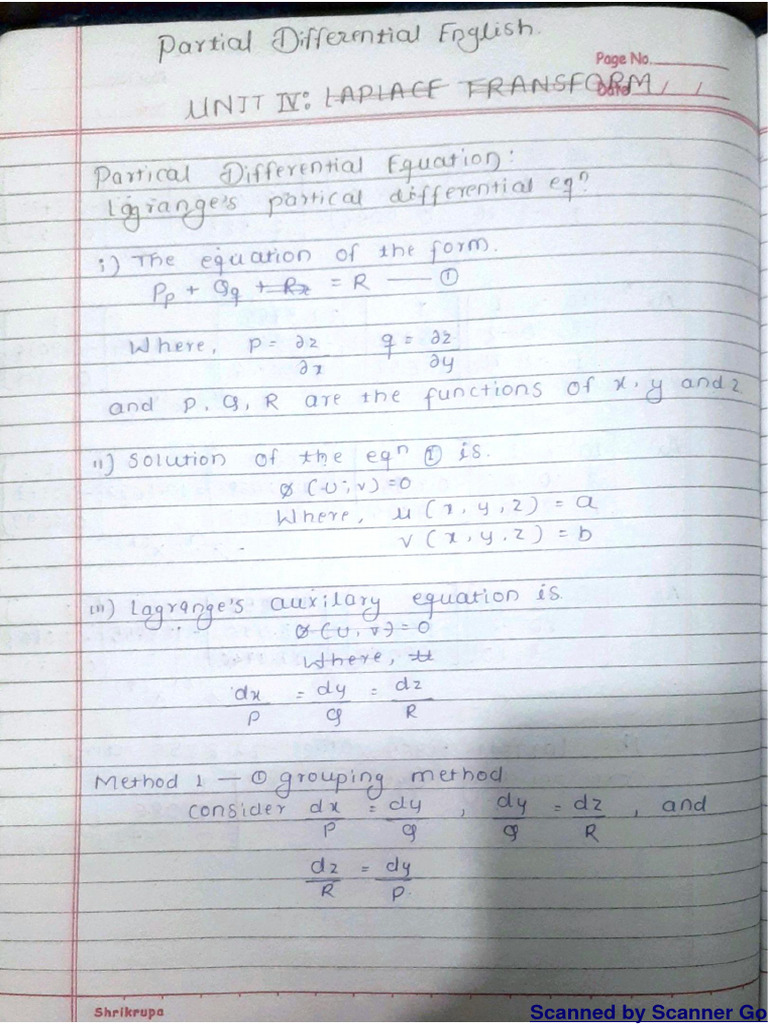 Partial Differential English.
Page No.
UNIT IV: LAPLACE TRANSFORM
Date / /
Partical Differential Equation:
lagrange's partical differential eqn
i) The equation of the form.
Pp + Qq + Rz = R — ①
Where, p = ∂z/∂x q = ∂z/∂y
and P, Q, R are the functions of x, y and z
ii) solution of the eqn ① is.
ø (u, v) = 0
Where, u (x, y, z) = a
v (x, y, z) = b
iii) lagrange's auxilary equation is
ø (u, v) = 0
Where, u
dx/P = dy/Q = dz/R
Method 1 — ① grouping method
consider dx/P = dy/Q , dy/Q = dz/R , and
dz/R = dy/P.
Shrikrupa
Scanned by Scanner Go